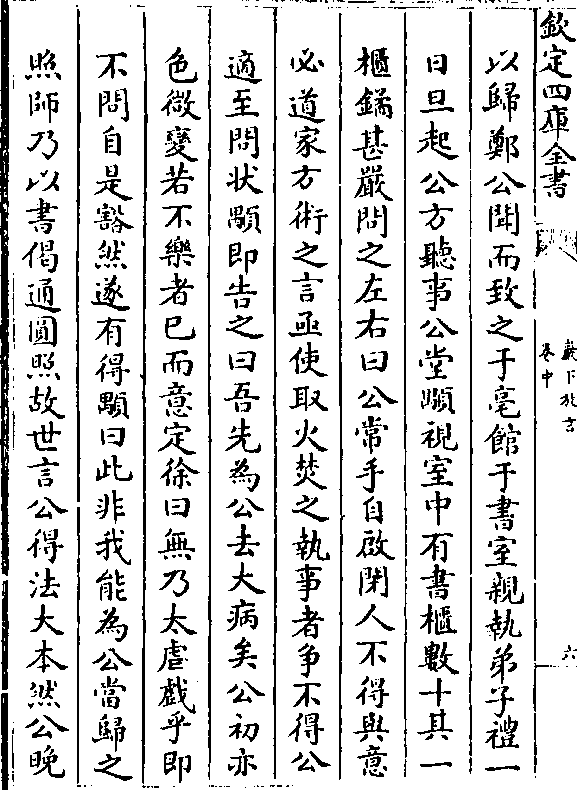 欽定四庫全書
巖下放言
卷中
六
以歸鄭公聞而致之于亳館于書室親執弟子禮一
日旦起公方聽事公堂顒視室中有書櫃數十其一
櫃鐍甚嚴問之左右曰公常手自啟閉人不得與意
必道家方術之言亟使取火焚之執事者爭不得公
適至問狀顒即告之曰吾先為公去大病矣公初亦
色微變若不樂者已而意定徐曰無乃太虐戲乎即
不問自是豁然遂有得顒曰此非我能為公當歸之
照師乃以書偈通圓照故世言公得法大本然公晚